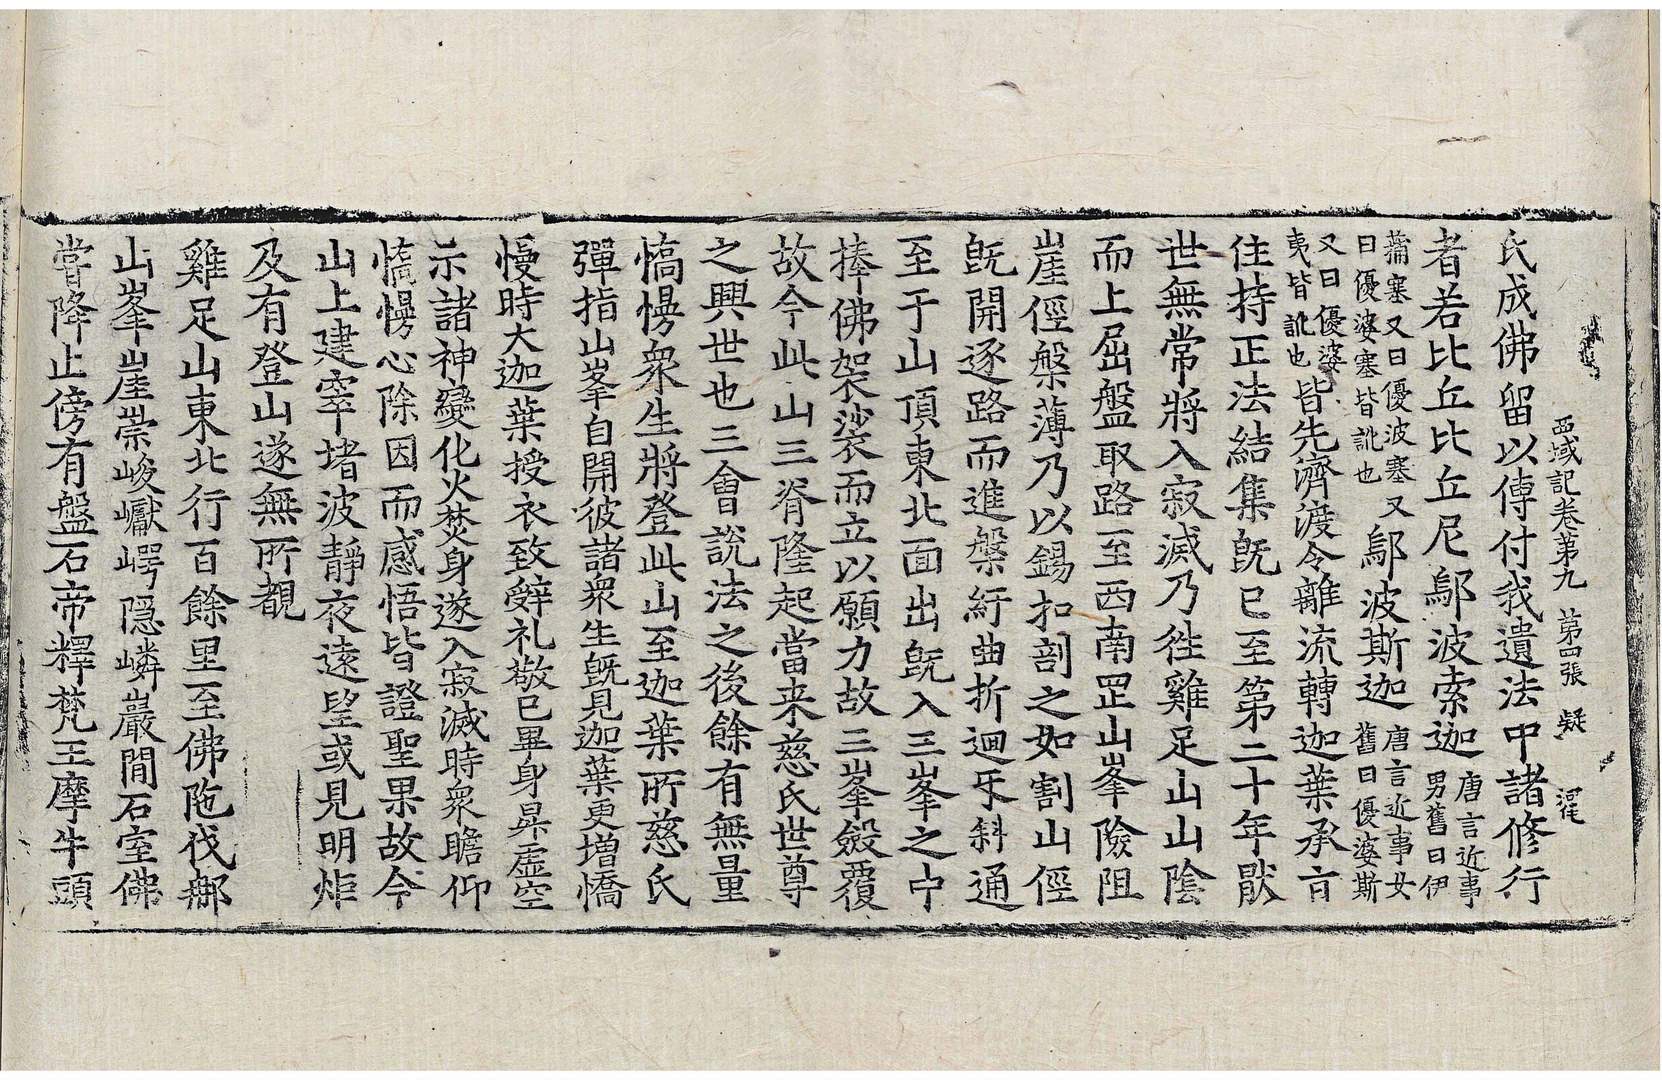 西域記卷第九 第四張 疑
氏成佛留以傳付我遺法中諸修行
者若比丘比丘尼鄔波索迦唐言近事男舊曰伊
蒲塞又曰優波塞又曰優婆塞皆訛也鄔波斯迦唐言近事女舊曰優婆斯
又曰優婆夷皆訛也皆先濟渡令離流轉迦葉承旨
住持正法結集旣已至第二十年猒
世無常將入寂滅乃徃雞足山山陰
而上屈盤取路至西南罡山峯險阻
崖徑槃薄乃以錫扣剖之如割山徑
旣開逐路而進槃紆曲折迴互斜通
至于山頂東北面出旣入三峯之中
捧佛袈裟而立以願力故三峯斂覆
故今此山三脊隆起當来慈氏世尊
之興世也三會說法之後餘有無量
憍慢衆生將登此山至迦葉所慈氏
彈指山峯自開彼諸衆生旣見迦葉更增憍
慢時大迦葉授衣致辭礼敬已畢身昇虛空
示諸神變化火焚身遂入寂滅時衆瞻仰
憍慢心除因而感悟皆證聖果故今
山上建窣堵波靜夜遠望或見明炬
及有登山遂無所覩
雞足山東北行百餘里至佛陁伐㮈
山峯崖崇峻巘崿隱嶙巖間石室佛
嘗降止傍有盤石帝釋梵王摩牛頭